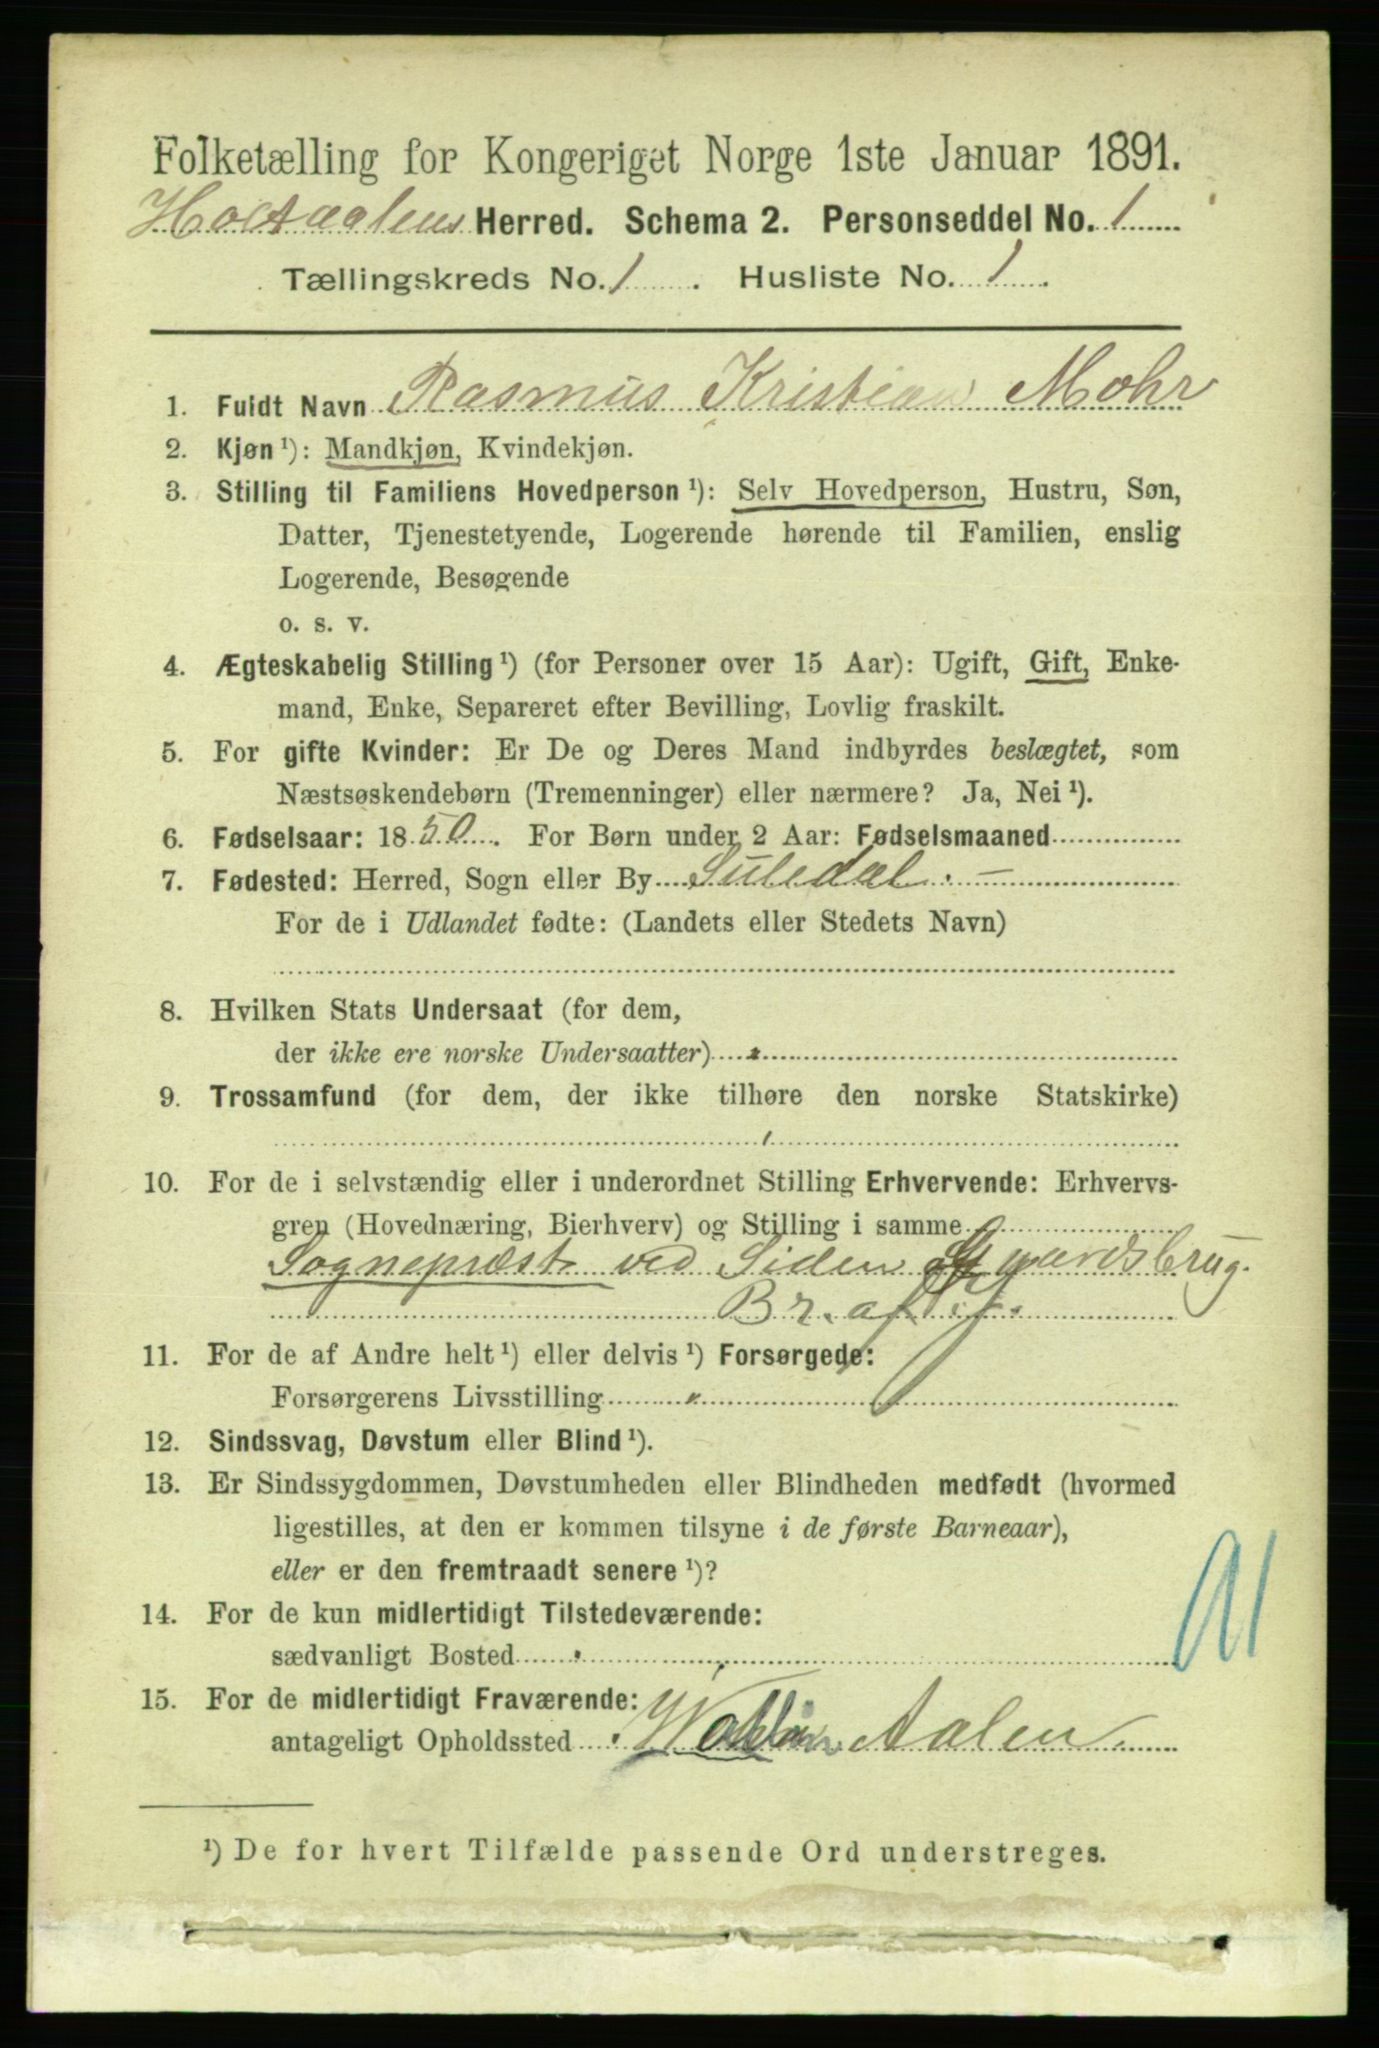 Folketælling for Kongeriget Norge 1ste Januar 1891.
Holtaalens Herred. Schema 2. Personseddel No. 1
Tællingskreds No. 1. Husliste No. 1.
1. Fuldt Navn Rasmus Kristian Mohr
2. Kjøn ¹): Mandkjøn, Kvindekjøn.
3. Stilling til Familiens Hovedperson ¹): Selv Hovedperson, Hustru, Søn,
Datter, Tjenestetyende, Logerende hørende til Familien, enslig
Logerende, Besøgende
o. s. v.
4. Ægteskabelig Stilling ¹) (for Personer over 15 Aar): Ugift, Gift, Enke-
mand, Enke, Separeret efter Bevilling, Lovlig fraskilt.
5. For gifte Kvinder: Er De og Deres Mand indbyrdes beslægtet, som
Næstsøskendebørn (Tremenninger) eller nærmere? Ja, Nei ¹).
6. Fødselsaar: 1850. For Børn under 2 Aar: Fødselsmaaned
7. Fødested: Herred, Sogn eller By Suledal. —
For de i Udlandet fødte: (Landets eller Stedets Navn)
8. Hvilken Stats Undersaat (for dem,
der ikke ere norske Undersaatter)
9. Trossamfund (for dem, der ikke tilhøre den norske Statskirke)
10. For de i selvstændig eller i underordnet Stilling Erhvervende: Erhvervs-
gren (Hovednæring, Bierhverv) og Stilling i samme
Sognepræst ved Siden Gaardsbrug.
Br. af
11. For de af Andre helt ¹) eller delvis ¹) Forsørgede:
Forsørgerens Livsstilling
12. Sindssvag, Døvstum eller Blind ¹).
13. Er Sindssygdommen, Døvstumheden eller Blindheden medfødt (hvormed
ligestilles, at den er kommen tilsyne i de første Barneaar),
eller er den fremtraadt senere ¹)?
14. For de kun midlertidigt Tilstedeværende:
sædvanligt Bosted
15. For de midlertidigt Fraværende:
antageligt Opholdssted Aalen
¹) De for hvert Tilfælde passende Ord understreges.